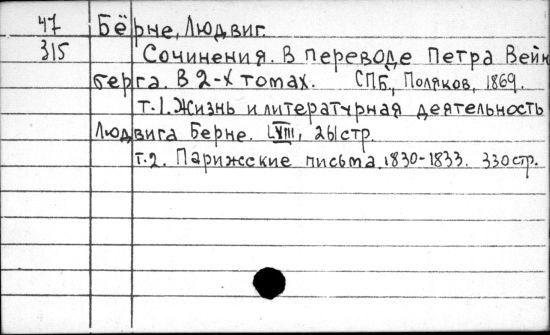 47 Бёрне, Людвиг.
315 Сочинения. В переводе Петра Вейн
берга. В 2-х томах. СПБ., Поляков, 1869.
т.1. Жизнь и литературная деятельность
Людвига Берне. LVIII, 261стр.
т.2. Парижские письма. 1830-1833. 330стр.